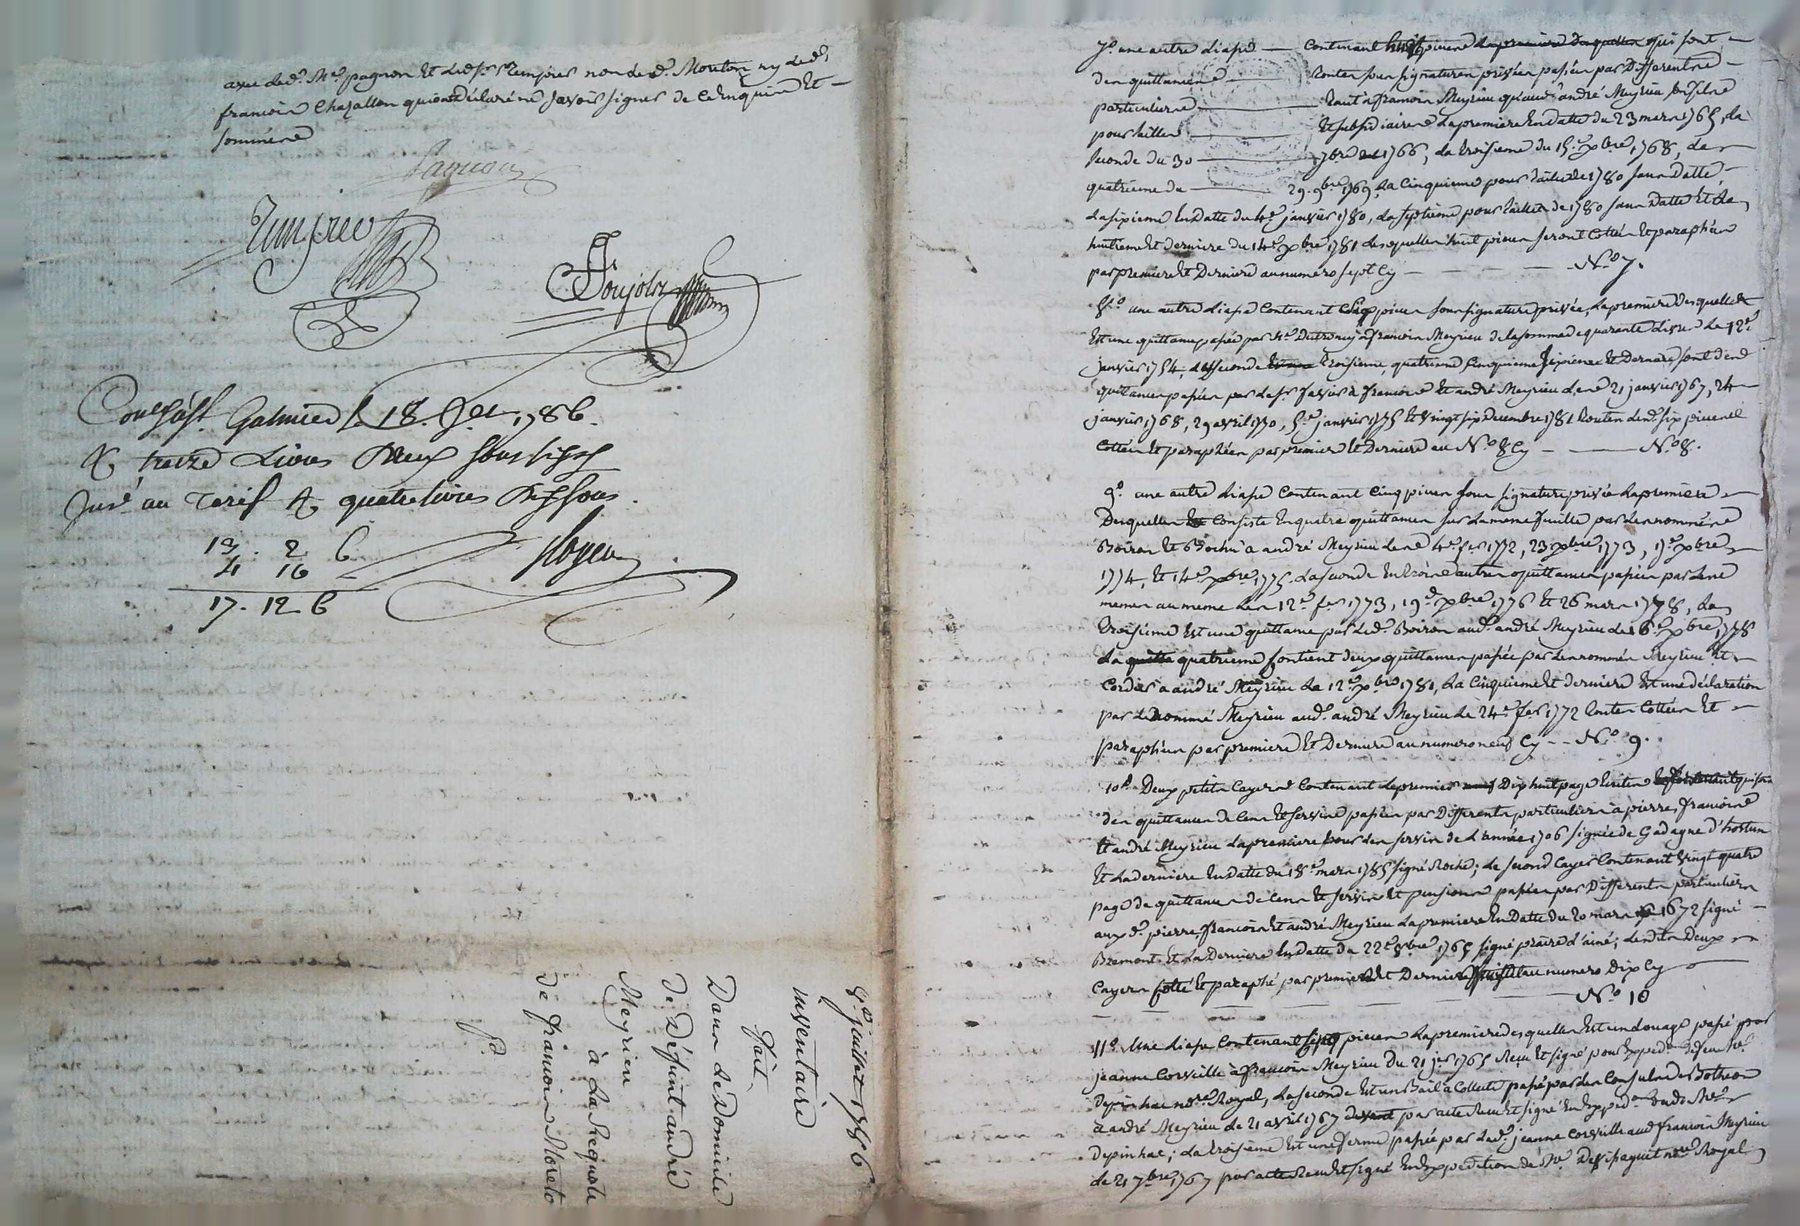 avec led. Me. pagnon Et Led. sr. Rempnes non led. Moreton ny led.
francoin Chazallon qui ont déclaré ne savoir signer de ce Enquis Et
sommés
Pagnon
Contrôlé à St Galmier le 18. 1786.
treize Livres Deux sous six
au Tarif quatre livres seize sous.
13. 2 6
4 16
17. 12 6
8e. juillet 1786
inventaire
fait
Dans Le Domicile
de Défunt andré
Meyrieu
à La Requete
de francoin Moreto
7o. une autre Liasse Contenant huit pieces qui sont
des quittances toutes sous signatures privées passées par Differents
particuliers tant à francoin Meyrieu qu'aud. andré Meyrieu
pour tailles Et subsidiaires La premiere En datte du 23 mars 1765, La
seconde du 30 7bre 1766, La troisieme du 15. xbre. 1768, La
quatrieme du 29. 9bre 1769. La Cinquieme pour taille de 1780 sans Datte
La sixieme En Datte du 4e. janvier 1780, La septieme pour tailles de 1780 sans Datte Et La
huitieme Et derniere du 14e. xbre 1781 Lesquelles huit pieces seront Cottées Et paraphées
par premiere Et Derniere au numero sept Cy No. 7.
8o. une autre Liasse Contenant six pieces sous signature privée, La premiere Desquelles
Est une quittance passée par Me. Dutroncy à francoin Meyrieu de La somme de quarante Livres Le 12e.
janvier 1754, La seconde troisieme quatrieme Cinquieme sixieme Et Derniere sont des
quittances passées par Le sr. à francoin Et andré Meyrieu Les 21 janvier 1767, 24
janvier 1768, 29 avril 1770, 5e. janvier 1775 Et vingt six Decembre 1781 toutes Lesd. six pieces
Cottées Et paraphées par premiere Et Derniere au No. 8 Cy No. 8.
9o. une autre Liasse Contenant Cinq pieces sous signature privée La premiere
Desquelles Consiste En quatre quittances sur La meme feuille par Les nommés
Boiron Et à andré Meyrieu Les 4e. fer 1772, 23 xbre 1773, 1er. xbre
1774, Et 14e. xbre. 1775. La seconde En trois autres quittances passées par Les
memes au meme Les 12e. fer 1773, 19e. xbre 1776 Et 26 mars 1778, La
troisieme Est une quittance par Led. Boiron aud. andré Meyrieu de 6e. xbre. 1778
La quatrieme Contient deux quittances passées par Les nommés Meyrieu Et
Cordier à andré Meyrieu Le 12e. xbre 1781, La Cinquieme Et derniere Est une déclaration
par Le nommé Meyrieu aud. andré Meyrieu Le 24e. fer 1772 toutes Cottées Et
paraphées par premiere Et Derniere au numero neuf Cy No. 9.
10o. Deux petits Cayers Contenant Le premier Dix huit pages Ecrites qui sont
des quittances de Cens Et servis passées par Differents particuliers à pierre, francois
Et andré Meyrieu La premiere pour Les servis de L'année 1706 signée de Gadagne d'hostun
Et La derniere En Datte du 18e. mars 1785 signé Roche; Le second Cayer Contenant vingt quatre
pages de quittances de Cens Et servis Et pensions passées par Differents particuliers
auxd. pierre, francoin Et andré Meyrieu La premiere En Datte du 20 mars 1672 signé
Bremont Et La Derniere En Datte du 22e. 8bre 1765 signé praire d'ainé; Lesdits Deux
Cayers Cotté Et paraphé par premiere Et Derniere au numero Dix Cy
No. 10
11o. Une Liasse Contenant sept pieces La premiere desquelles Est un Louage passé par
jeanne Corveille à francoin Meyrieu Du 21 jer 1765 Recu Et signé pour Expedon. Me.
Depinhac nore. Royal, La seconde Est un Bail à Collecte passé par Les Consuls de Botheon
à andré Meyrieu Le 21 avril 1767 par acte Recu Et signé En Expedon. dud. Me.
Depinhac; La troisieme Est une ferme passée par Lad. jeanne Corveille aud. francoin Meyrieu
Le 21 7bre. 1767 par acte Recu Et signé En Expedition de Me. nore Royal